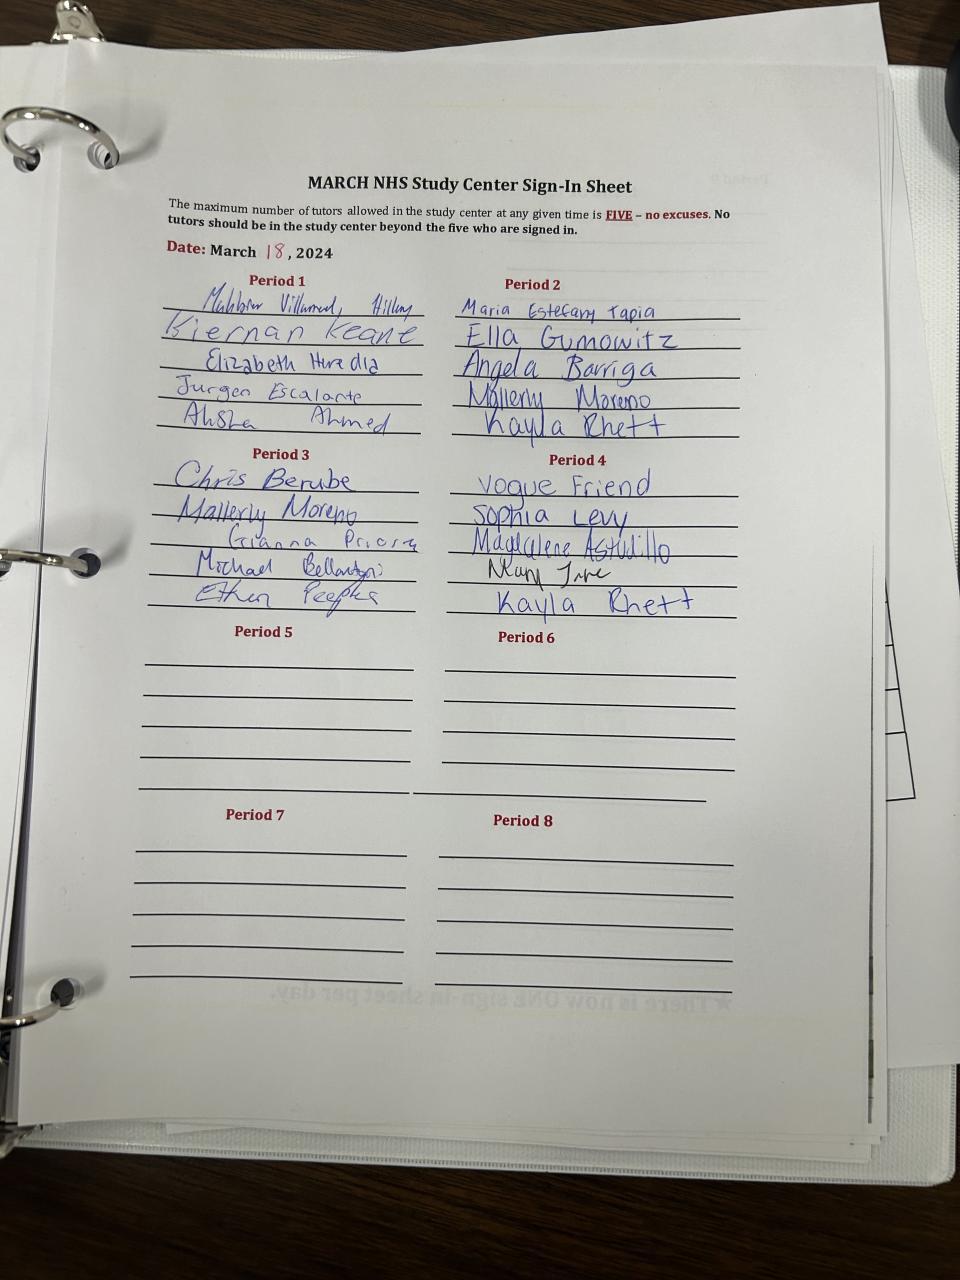 MARCH NHS Study Center Sign-In Sheet
The maximum number of tutors allowed in the study center at any given time is FIVE – no excuses. No
tutors should be in the study center beyond the five who are signed in.
Date: March 18, 2024
Period 1
Hillary
Kiernan Keane
Elizabeth Heredia
Jurgen Escalante
Ahmed
Period 2
Maria Estefany Tapia
Ella Gumowitz
Angela Barriga
Mallerly Moreno
Kayla Rhett
Period 3
Chris Berube
Mallerly Moreno
Gianna
Michael
Ethan
Period 4
Vogue Friend
Sophia Levy
Magdalene Astudillo
Kayla Rhett
Period 5
Period 6
Period 7
Period 8
★There is now ONE sign-in sheet per day.